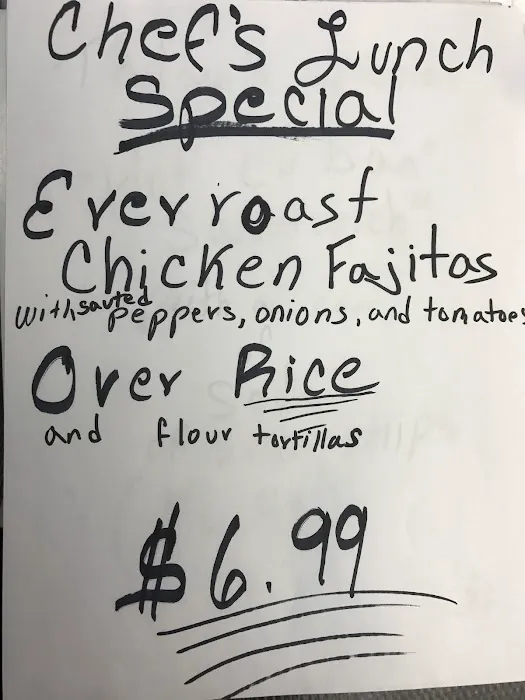 Chef's Lunch
Special
Ever roast
Chicken Fajitas
with sauted peppers, onions, and tomatoes
Over Rice
and flour tortillas
$6.99